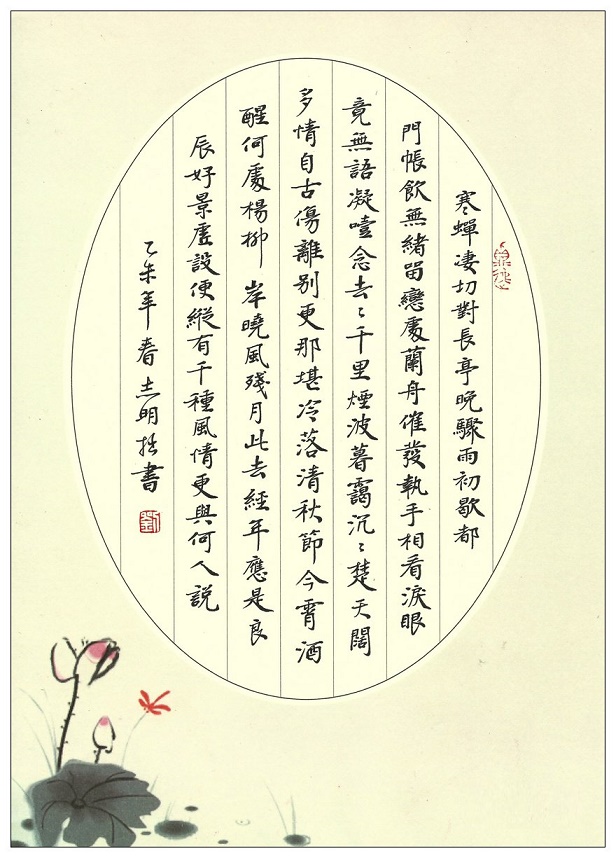 寒蟬凄切對長亭晚驟雨初歇都
門帳飲無緒留戀處蘭舟催發執手相看淚眼
竟無語凝噎念去〻千里煙波暮靄沉〻楚天闊
多情自古傷離別更那堪冷落清秋節今霄酒
醒何處楊柳岸曉風殘月此去經年應是良
辰好景虛設便縱有千種風情更與何人説
乙未年春志明拙書
劉